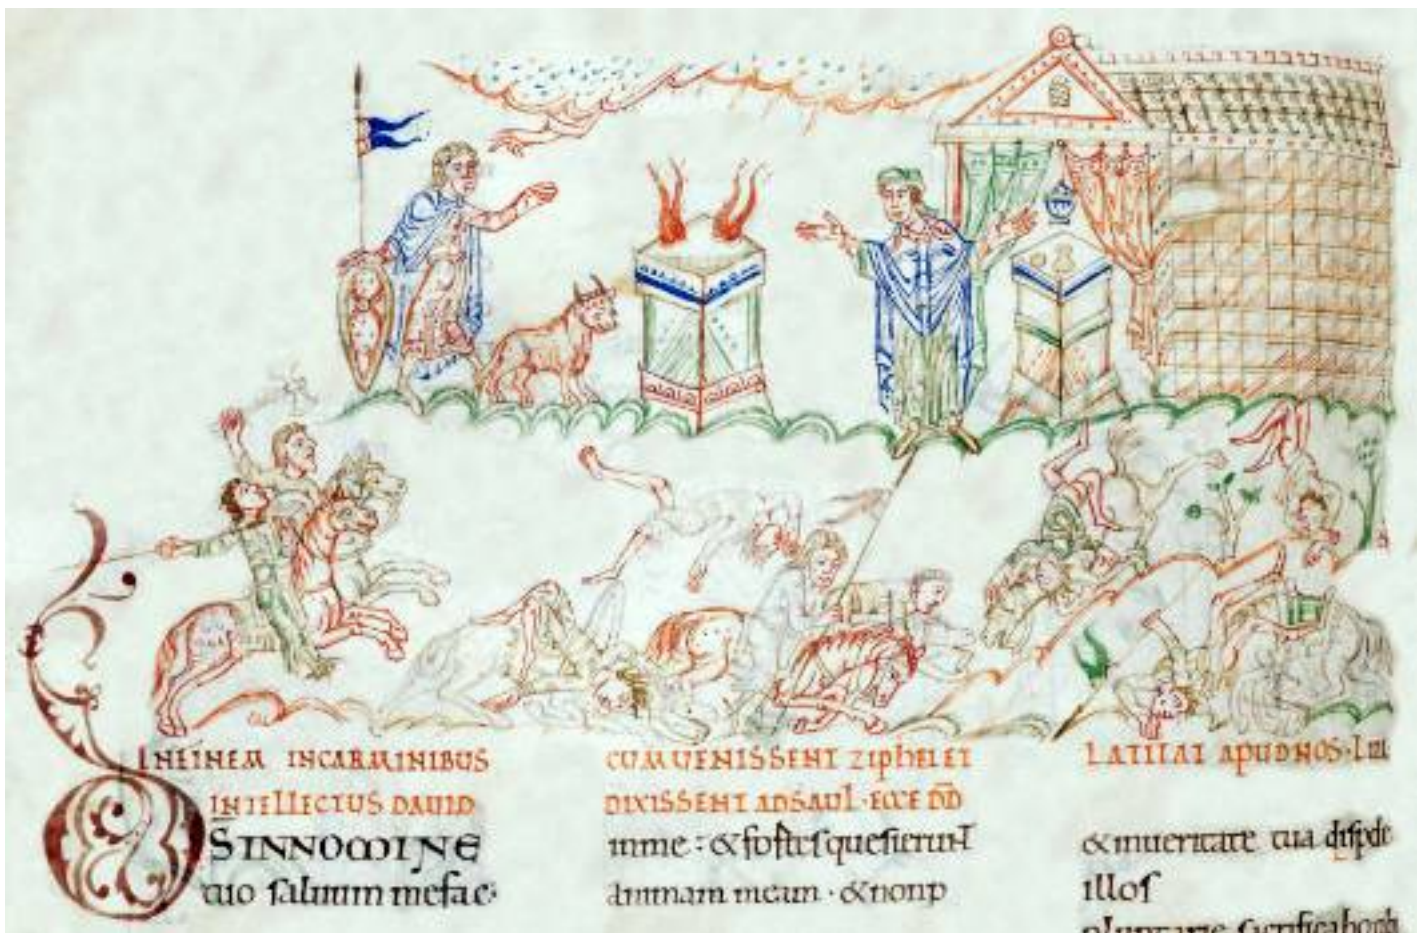 INFINEM INCARMINIBUS
INTELLECTUS DAUID
DS̄ INNOMINE
tuo saluum mefac·
CUM UENISSENT ZIPHEI ET
DIXISSENT ADSAUL·ECCE DD̄
inme: & fortes quesierunt
animam meam · & nonp
LATITAT APUDNOS·LIII
& inueritate tua disp̄de
illos